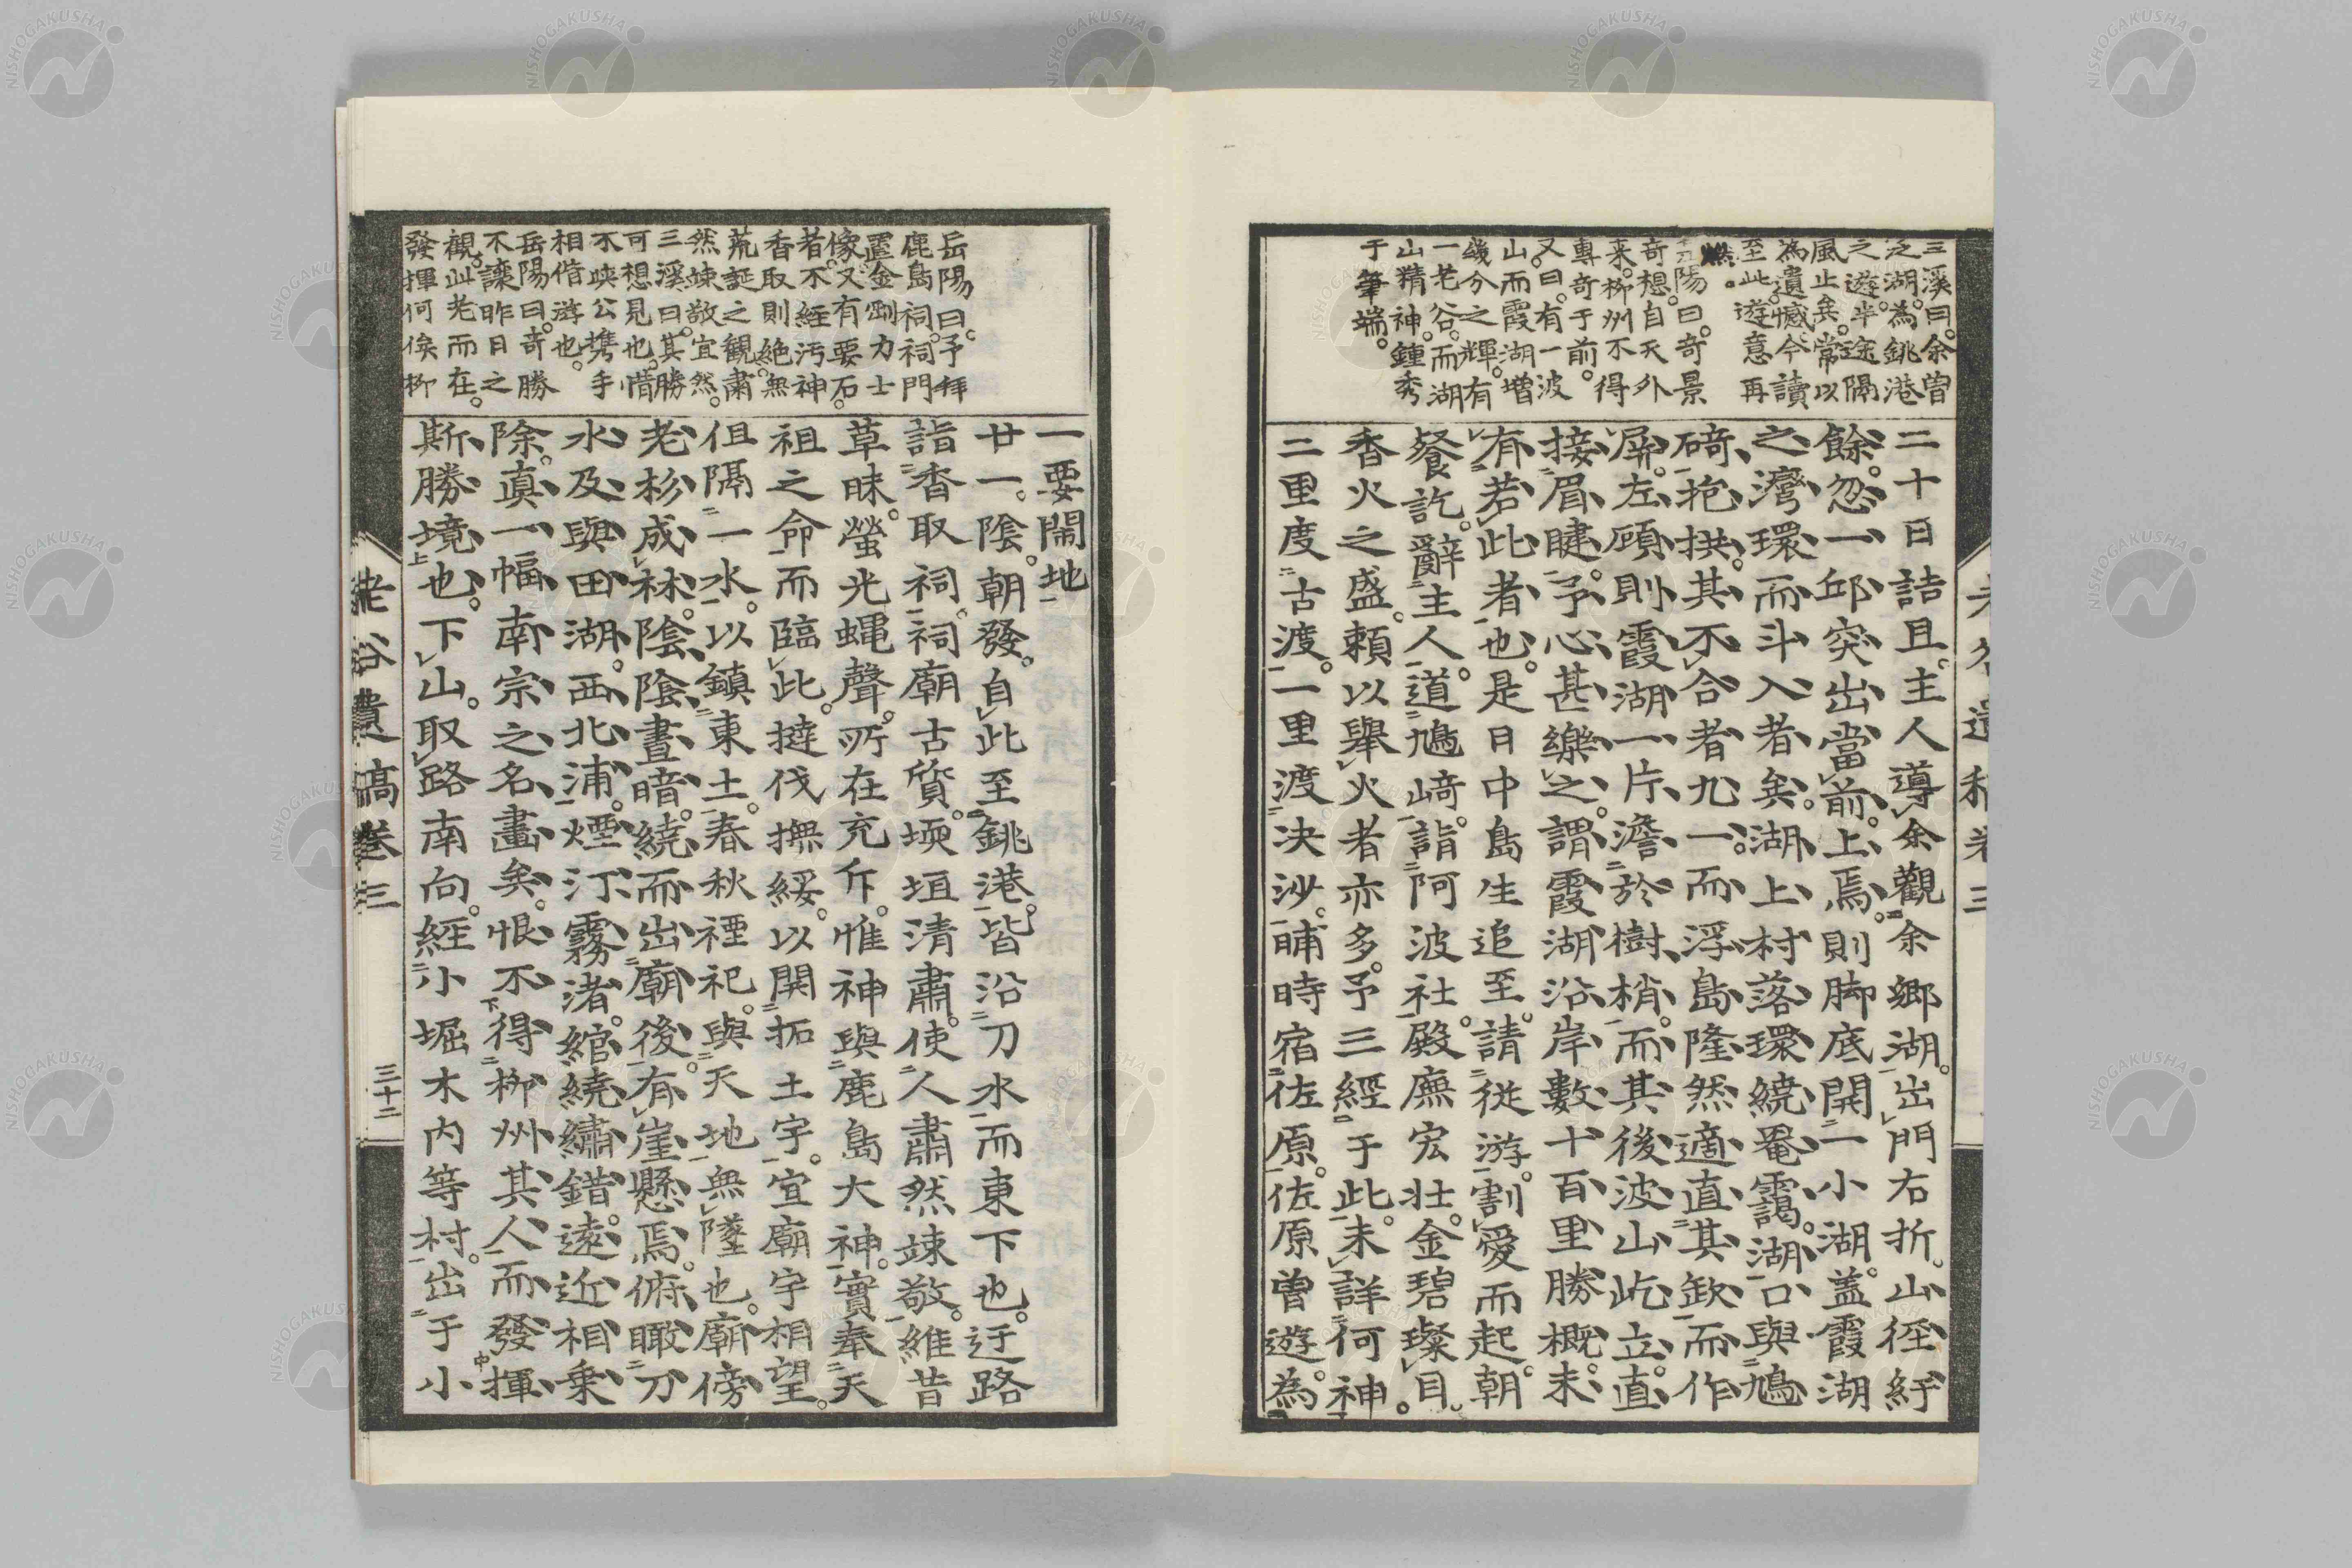 三溪曰。余曾
之湖。為銚港
之遊。半途隔
風止矣。常以
為遺憾。今讀
至此。遊意再
燃。
岳陽曰。奇景
奇想。自天外
来。柳州不得
專奇于前。
又曰。有一波
山。而霞湖增
幾分之輝。有
一老谷。而湖
山精神。鍾秀
于筆端。
二十日詰旦。主人導余觀余鄉湖。出門右折。山徑紆
餘。忽一邱突出當前。上焉。則脚底開一小湖。盖霞湖
之灣環而斗入者矣。湖上村落環繞罨靄。湖口與鳩
碕抱拱。其不合者九一。而浮島隆然適直其欽而作
屏。左顧則霞湖一片。澹於樹梢。而其後波山屹立。直
接眉睫。予心甚樂之。謂霞湖沿岸數十百里勝概。未
有若此者也。是日中島生追至。請從游。割愛而起。朝
餐訖。辭主人。道鳩﨑。詣阿波社。殿廡宏壮。金碧璨目。
香火之盛。頼以舉火者亦多。予三經于此。未詳何神。
二里度古渡。一里渡决沙。晡時宿佐原。佐原曽遊為
老谷遺稿卷三
岳陽曰。予拜
鹿島祠。祠門
置金剛力士
像。又有要石。
者。不經汚神
香取則絶無
荒誕之觀。肅
然竦敬宜然。
三溪曰。其勝
可想見也。惜
不峡公携手
相偕游也。
岳陽曰。奇勝
不讓昨日之
觀。此老而在。
發揮何俟柳
一要閙地
廿一。陰。朝發。自此至銚港。皆沿刀水而東下也。迂路
詣香取祠。祠廟古質。堧垣清肅。使人肅然竦敬。維昔
草昧。螢光蠅聲。所在充斥。惟神與鹿島大神。實奉天
祖之命而臨此。撻伐撫綏。以開拓土宇。宜廟宇相望。
但隔一水。以鎮東土。春秋禋祀。與天地無墜也。廟傍
老杉成林。陰陰晝暗。繞而出廟後。有崖懸焉。俯瞰刀
水及與田湖。西北浦。煙汀霧渚。綰繞繡錯。遠近相乗
除。真一幅南宗之名畫矣。恨不得柳州其人而發揮
斯勝境也。下山。取路南向。經小堀木内等村。出于小
老谷遺稿卷三
三十二